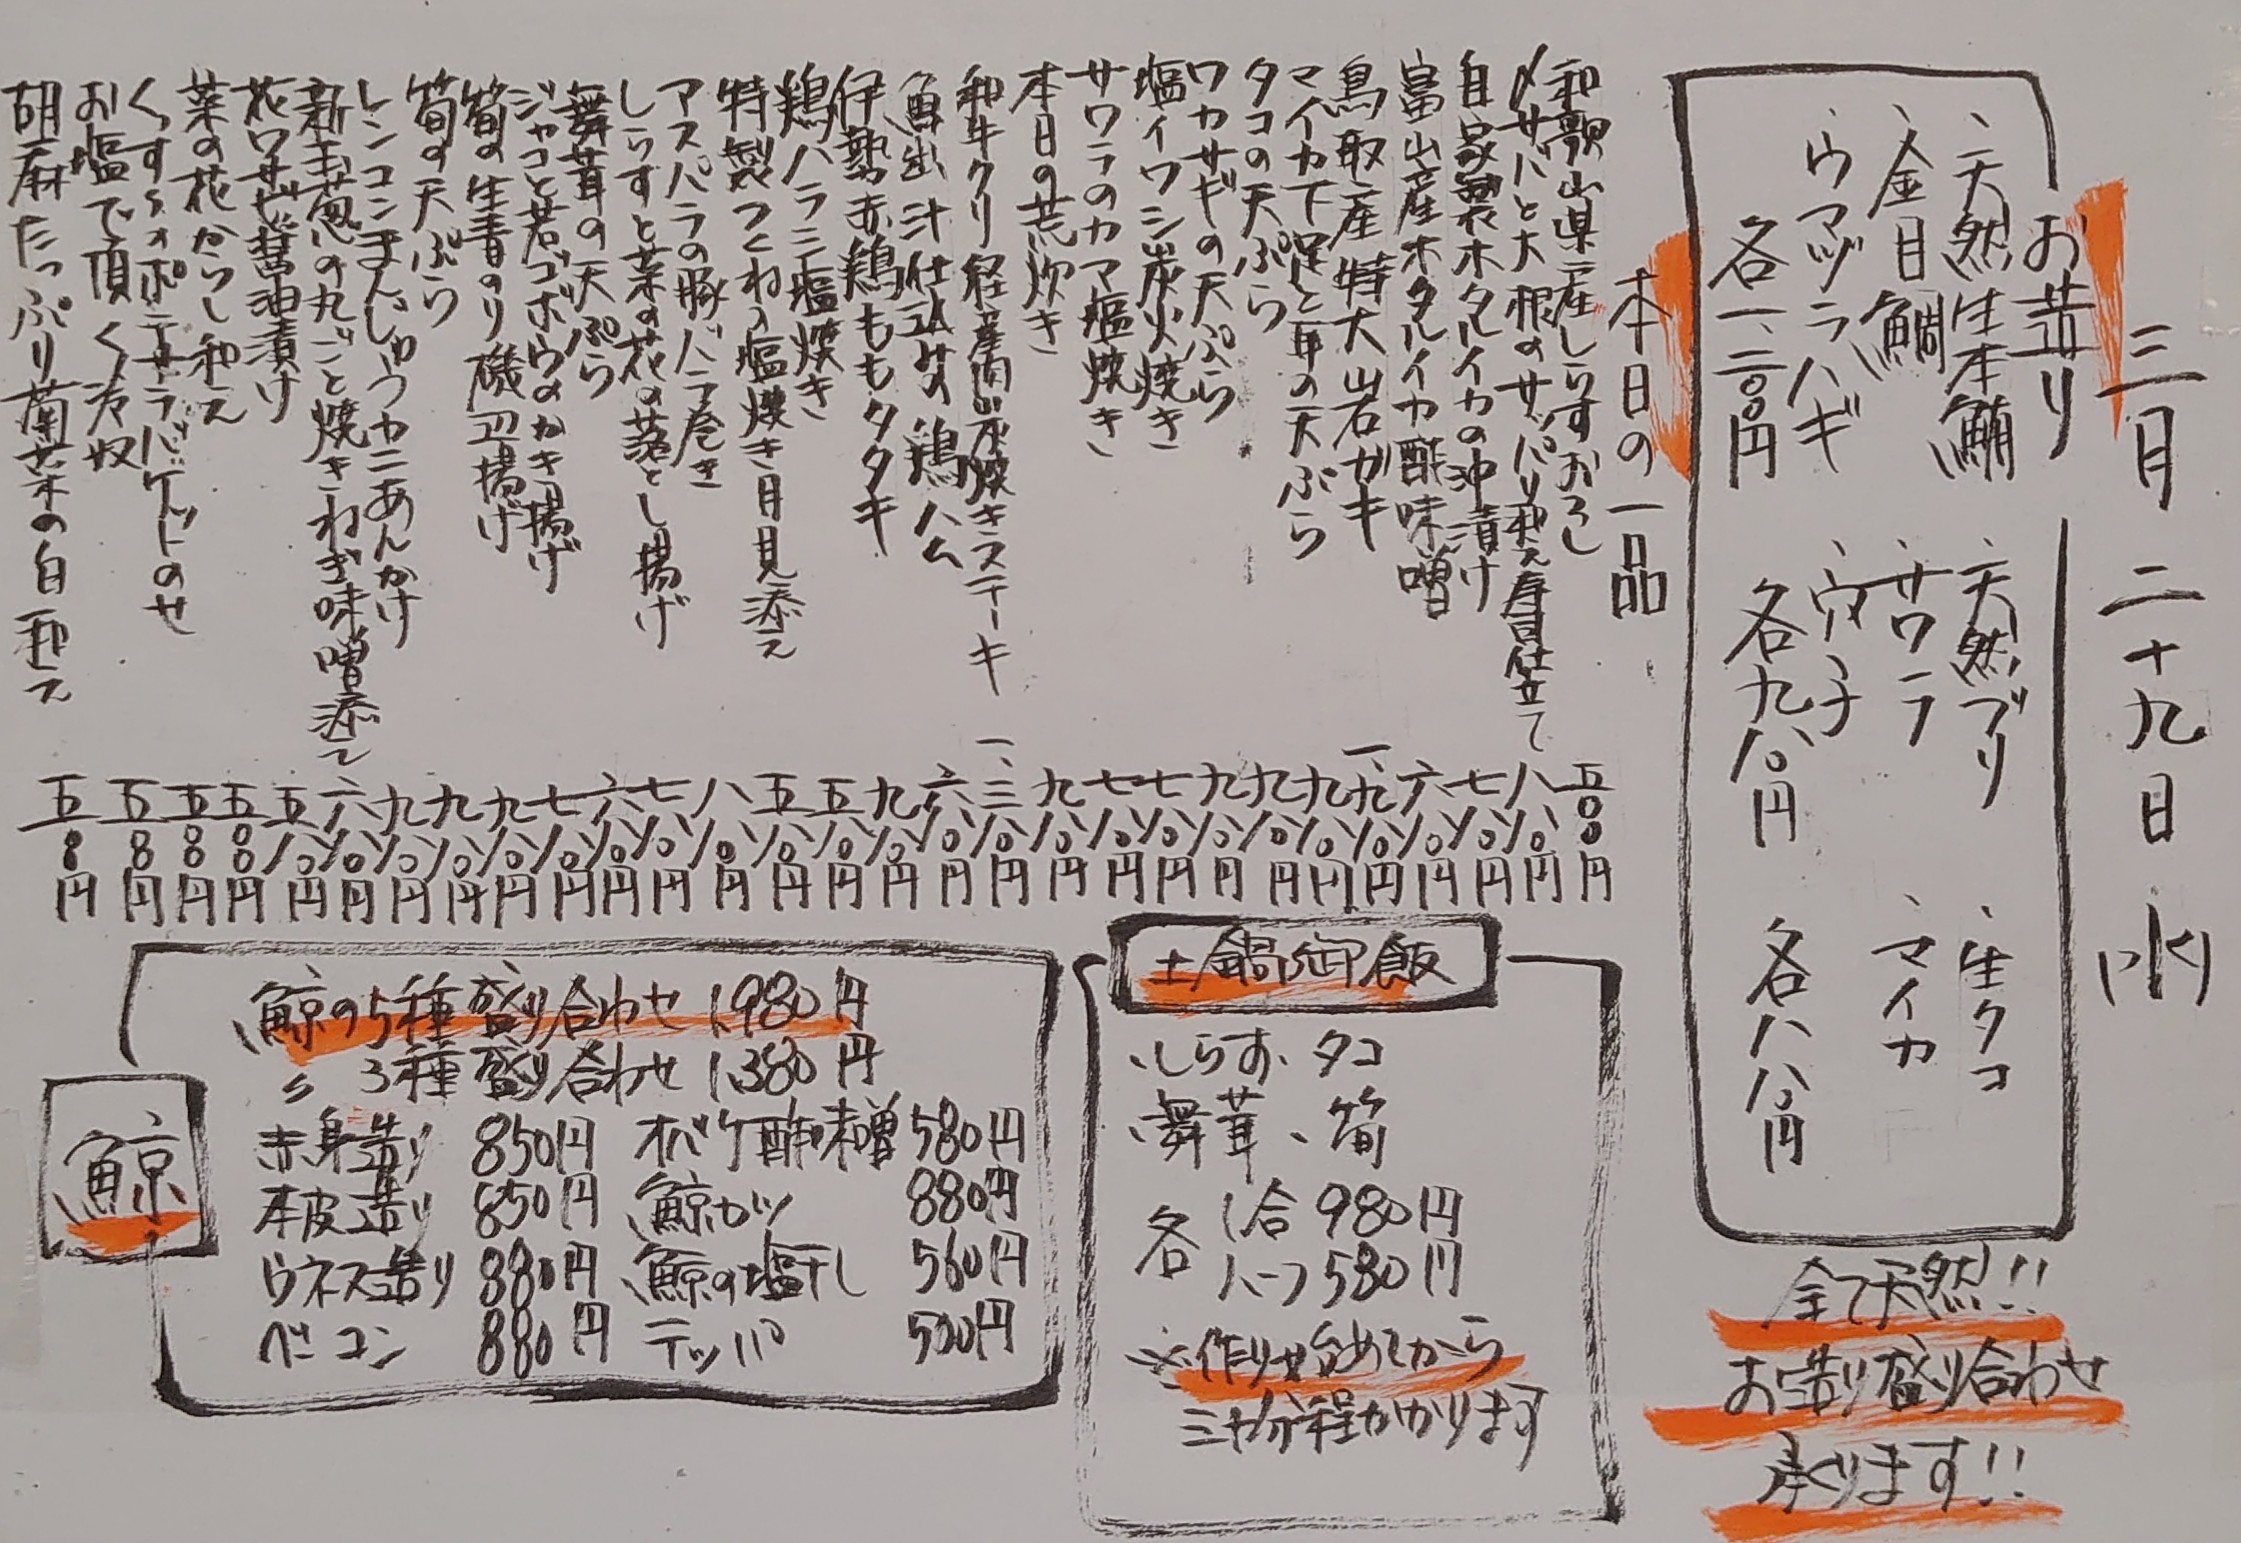 三月二十九日 水
お造り
、天然生本鮪
、金目鯛
、ウマヅラハギ
各一、二〇〇円
、天然ブリ
、サワラ
、穴子
各九八〇円
、生タコ
、マイカ
各八八〇円
全て天然!!
お造り盛り合わせ
承ります!!
本日の一品
和歌山県産しらすおろし 五〇〇円
〆サバと大根のサッパリ和え寿司仕立て 八八〇円
自家製ホタルイカの沖漬け 七八〇円
富山産ホタルイカ酢味噌 六八〇円
鳥取産特大岩ガキ 一、九八〇円
マイカ下足と耳の天ぷら 九八〇円
タコの天ぷら 九八〇円
ワカサギの天ぷら 九八〇円
塩イワシ炭火焼き 七八〇円
サワラのカマ塩焼き 七八〇円
本日の荒炊き 九八〇円
和牛クリ経産肉炭焼きステーキ 一、三八〇円
魚出汁仕込みの鶏ハム 六八〇円
伊勢赤鶏ももタタキ 九八〇円
鶏ハラミ塩焼き 五八〇円
特製つくねの塩焼き月見添え 五八〇円
アスパラの豚バラ巻き 八八〇円
しらすと菜の花の落とし揚げ 七八〇円
舞茸の天ぷら 六八〇円
ジャコと若ゴボウのかき揚げ 七八〇円
筍の生青のり磯辺揚げ 九八〇円
筍の天ぷら 九八〇円
レンコンまんじゅうカニあんかけ 九八〇円
新玉葱の丸ごと焼きねぎ味噌添え 六八〇円
花ワサビ醤油漬け 五八〇円
菜の花からし和え 五〇〇円
くずしポテサラバゲットのせ 五〇〇円
お塩で頂く冷奴 五〇〇円
胡麻たっぷり菊菜の白和え 五〇〇円
土鍋御飯
、しらす、タコ
、舞茸、筍
各 1合 980円
ハーフ 580円
※作りせ始めてから
三十分程かかります
鯨
鯨の5種盛り合わせ 1,980円
〃 3種盛り合わせ 1,380円
赤身造り 850円 オバケ酢味噌 580円
本皮造り 850円 鯨カツ 880円
ウネス造り 880円 鯨の塩干し 560円
ベーコン 880円 テッパ 500円